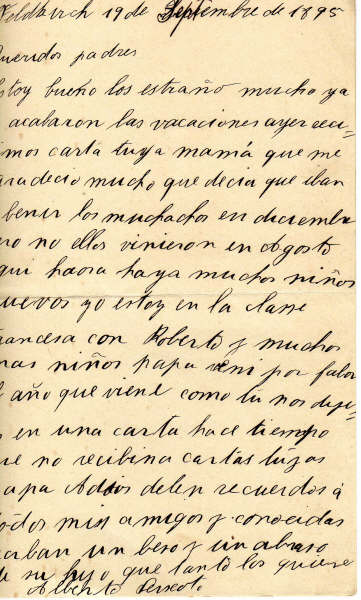 Feldkirch 19 de Septiembre de 1895
Queridos padres
Estoy bueno los estraño mucho ya
acabaron las vacaciones ayer reci-
vimos carta tuya mamá que me
que decia que iban
benir los muchachos en diciembre
no ellos vinieron en Agosto
qui haora haya muchos niños
nuevos yo estoy en la classe
francesa con Roberto y muchos
mas niños papa veni por fabor
el año que viene como tu nos
en una carta hace tiempo
que no cartas tuyas
papa Adios delen recuerdos á
todos mis amigos y conocidas
reciban un beso y un abraso
de su hijo que tanto los quiere
Alberto